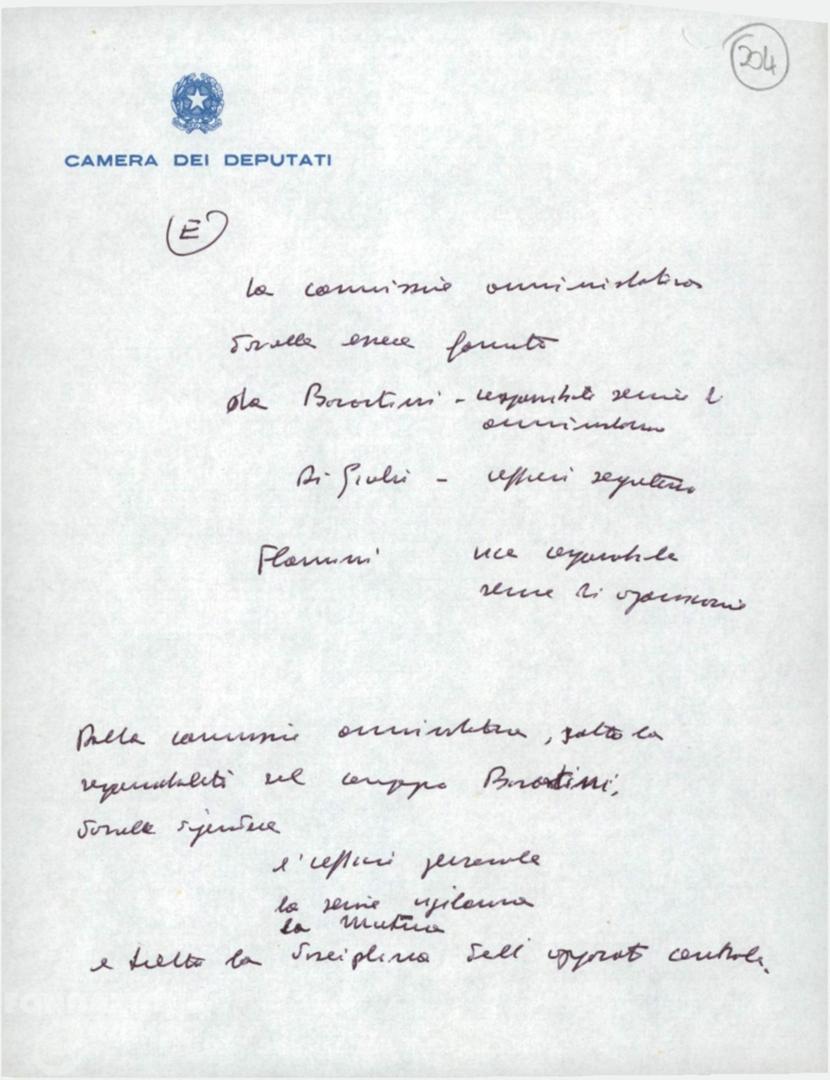 204
CAMERA DEI DEPUTATI
E
La commissione amministrativa
dovrebbe essere formata
da Borattini - responsabile sezione di
amministrazione
Di Giulio - ufficio segreteria
Flamini vice responsabile
sezione di organizzazione
Dalla commissione amministrativa, sotto la
responsabilità del compagno
dovrebbe dipendere
l'ufficio generale
la vigilanza
la Mutua
e tutta la disciplina dell'apparato centrale.